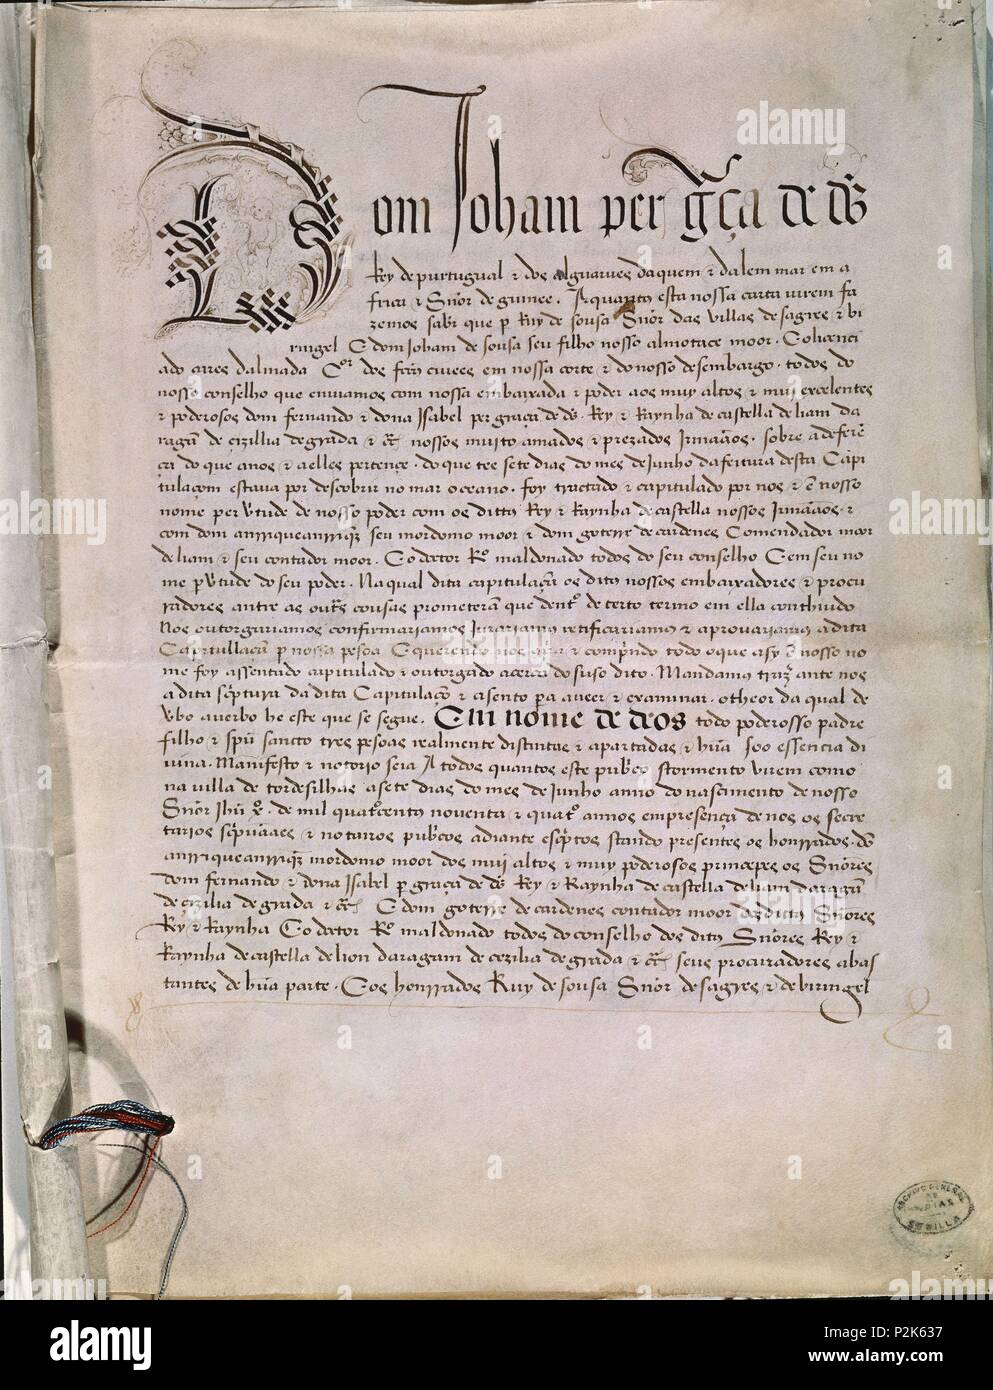 Dom Joham per gr̃ça de ds̃
Rey de purtugual & dos alguarues daquem & dalem mar em a
frica & Sñor de guinee. A quantos esta nossa carta virem fa
zemos sabr̃ que p Ruy de sousa Sñor das villas de sagres & bi
ringel E dom Joham de sousa seu filho nosso almotace moor. E o licenci
ado aires dalmada Cor dos feitos ciuees em nossa corte & do nosso desembargo. todos do
nosso conselho que enuiamos com nossa embaixada & poder aos muy altos & muj excelentes
& poderosos dom fernando & dona Isabel per graça de ds̃. Rey & Raynha de castella de liam da
ragam de cizillia de grada & cr̃ nossos muito amados & prezados Irmaãos. sobre a deferẽ
ça do que a nos & a elles pertençe. do que tee sete dias do mes de Junho da feitura desta Capi
tulaçom estaua por descobrir no mar oceano. foy tractado & capitulado por nos & ẽ nosso
nome per vtude de nosso poder com os dittos Rey & Raynha de castella nossos Irmaãos. &
com dom anrrique anrriqz̃ seu mordomo moor & dom goterre de cardenes Comendador moor
de liam & seu contador moor. E o doctor Ro maldonado todos do seu conselho E em seu no
me p vtude do seu poder. Na qual dita capitulaçã os ditos nossos embaixadores & procu
radores antre as outras cousas prometeram que dentro de certo termo em ella conthiudo
Nos outorgariamos confirmariamos Jurariamos retificariamos & aprouariamos a dita
Capitullaçã p nossa pesoa E querendo nos & comprindo todo o que asy ẽ nosso no
me foy assentado capitulado & outorgado acerca do suso dito. Mandamos trazer ante nos
a dita scriptura da dita Capitulaçã & asento pera a veer & examinar. o theor da qual de
vbo a verbo he este que se segue. Em nome de deos todo poderosso padre
filho & spũ sancto tres pesoas realmente distintas & apartadas & hũa soo essencia di
uina. Manifesto & notorio seia A todos quantos este pubrico stormento virem como
na villa de tordesilhas a sete dias do mes de Junho anno do nascimento de nosso
Sñor Jhũ x̃o. de mil quatrocentos nouenta & quatro annos em presença de nos os secre
tarios scripuaães & notairos pubricos adiante escriptos stando presentes os honrrados. dõ
anrrique anrriqz̃ mordomo moor dos muj altos & muy poderosos princepes os Sñores
dom fernando & dona Isabel p graça de ds̃ Rey & Raynha de castella de liam daragam
de cizilia de grada & cr̃ E dom goterre de cardenes contador moor dos dittos Sñores
Rey & Raynha E o doctor Ro maldonado todos do conselho dos ditos Sñores Rey &
Raynha de castella de lion daragam de cezilia de grada & cr̃ seus procuradores abas
tantes de hũa parte. E os honrrados Ruy de sousa Sñor de sagres & de biringel
ARCHIVO GENERAL
DE
INDIAS
SEVILLA
alamy
a
alamy stock photo
P2K637
www.alamy.com